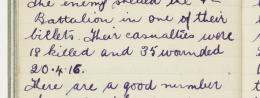 The enemy shelled the 4th
Battalion in one of their
billets. Their casualties were
18 killed and 35 wounded
20.4.16.
There are a good number